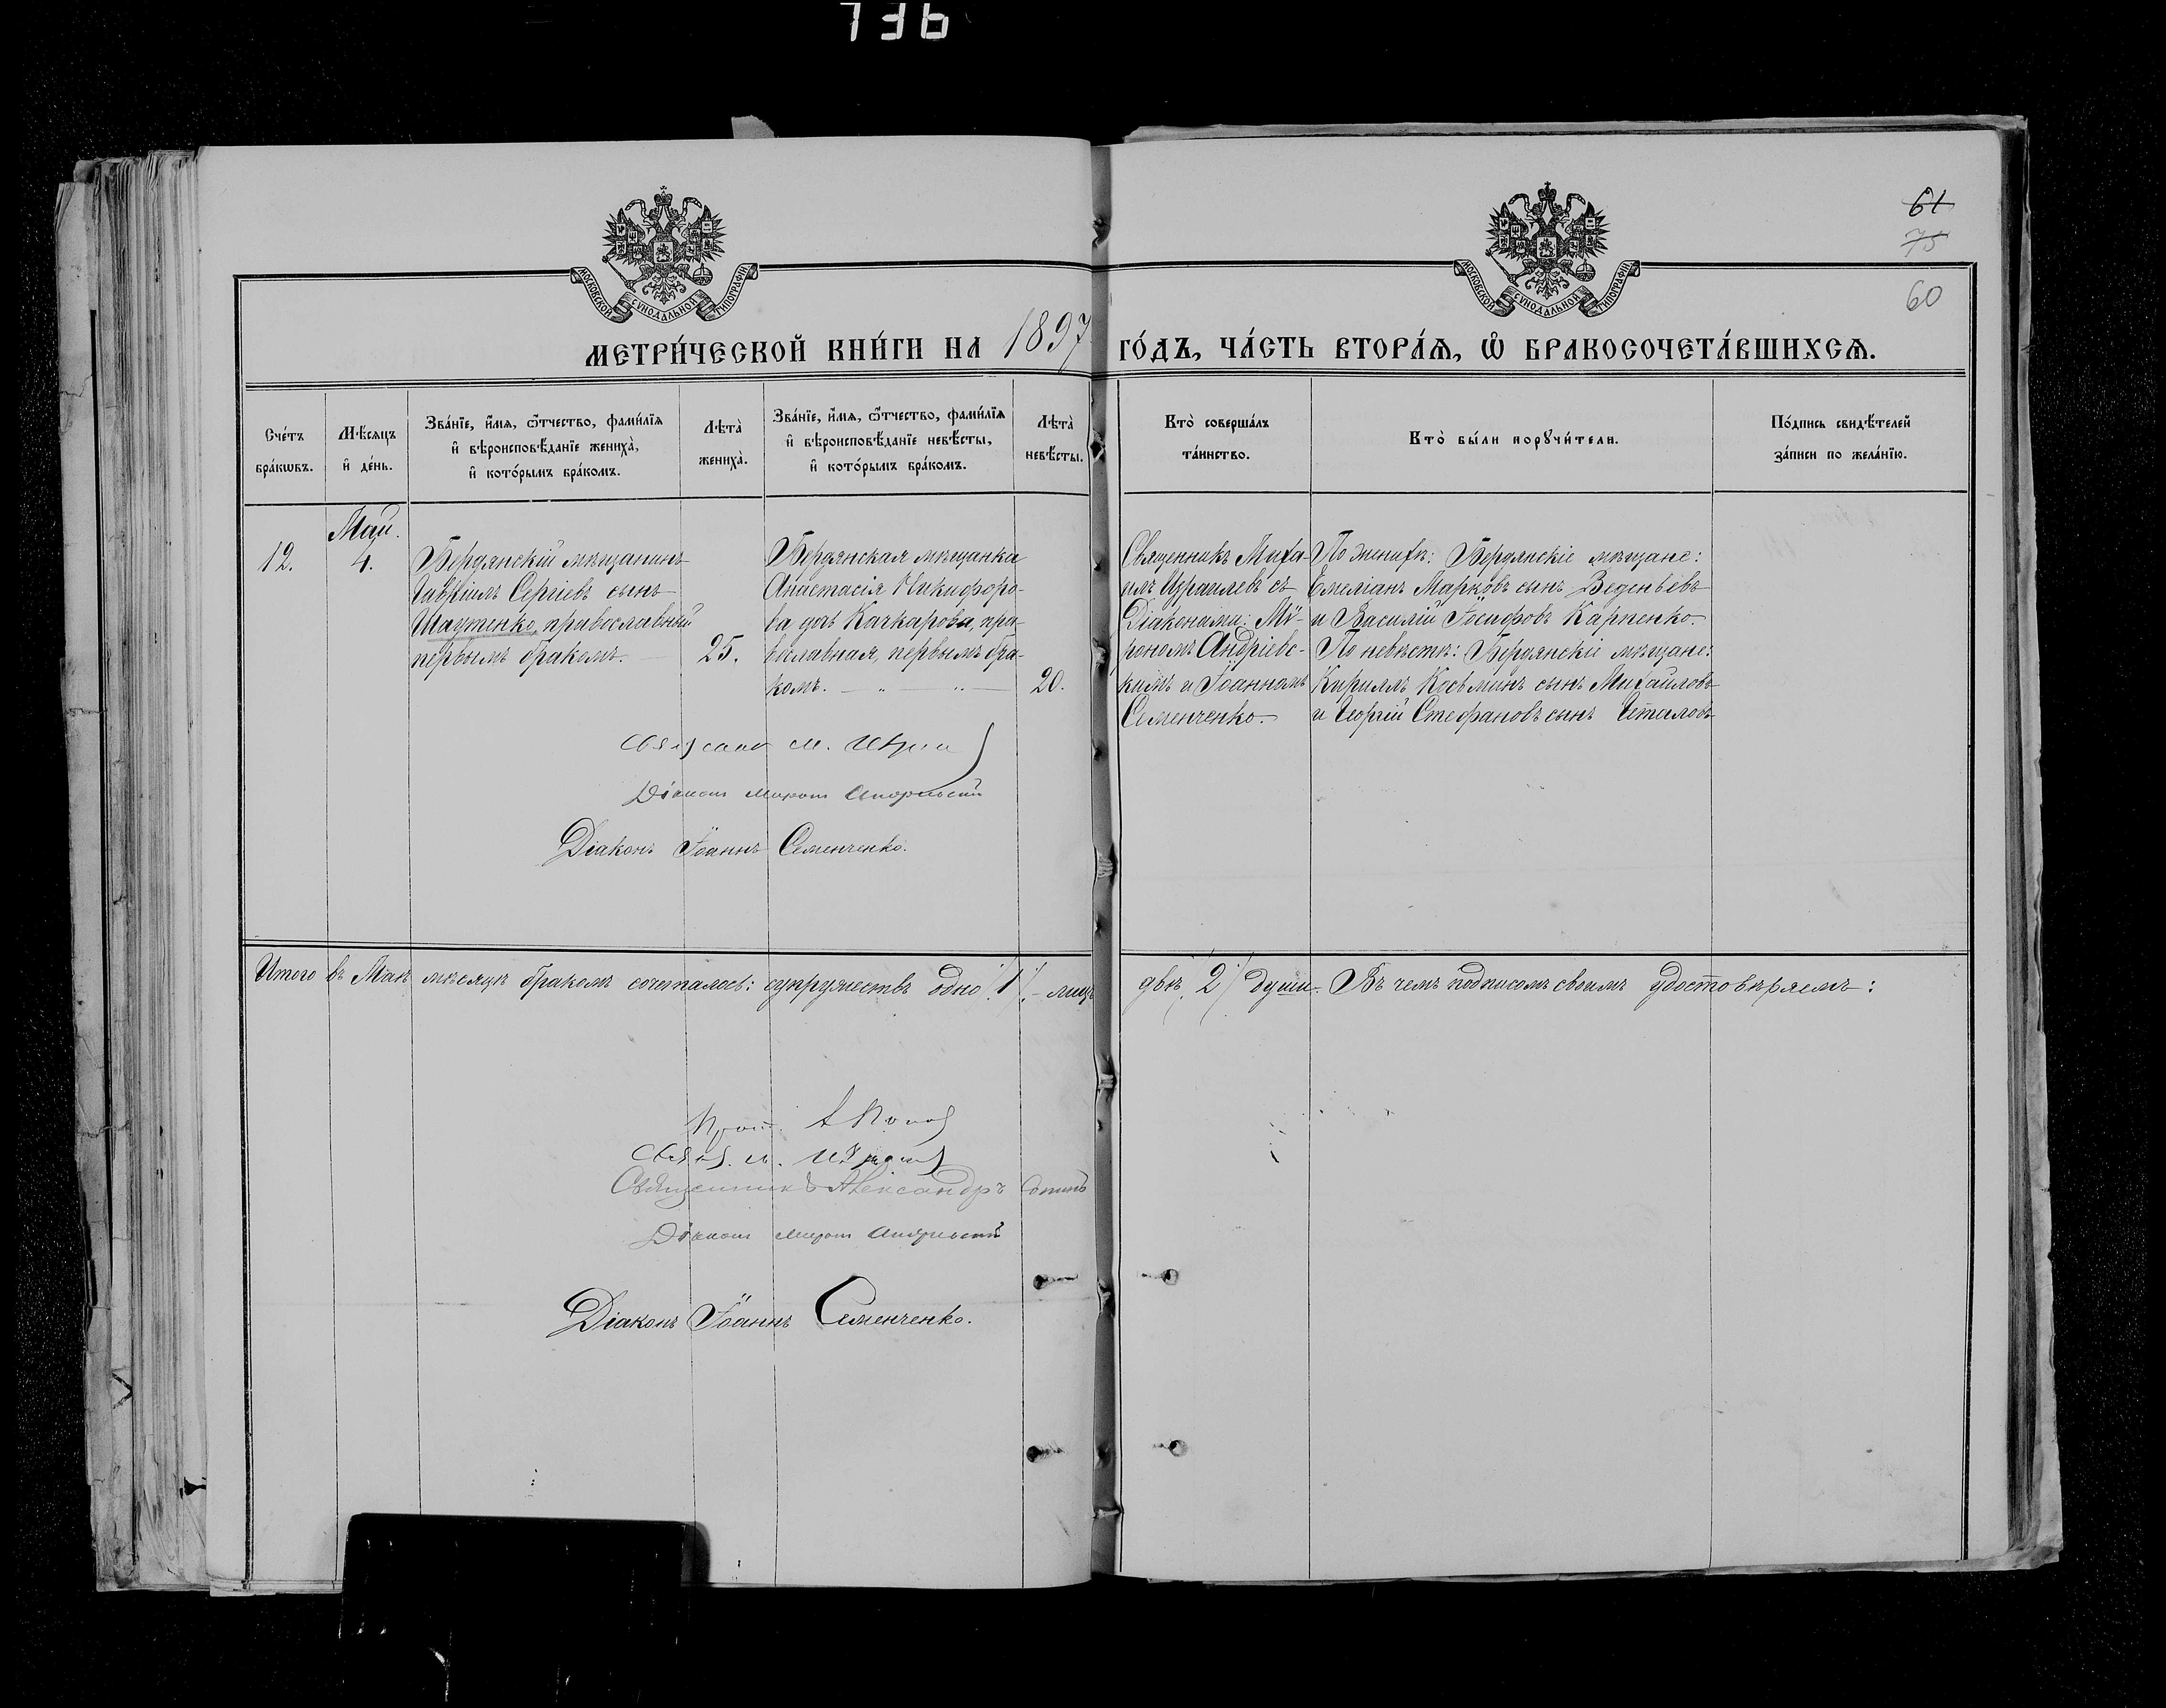 736
61
75
60
МОСКОВСКОЙ СѴНОДАЛЬНОЙ ТИПОГРАФІИ
МОСКОВСКОЙ СѴНОДАЛЬНОЙ ТИПОГРАФІИ
МЕТРИ́ЧЕСКОЙ КНИ́ГИ НА 1897 ГО́ДЪ, ЧА́СТЬ ВТОРА́Ѧ, Ѡ҆ БРАКОСОЧЕТА́ВШИХСѦ.
Сче́тъ
бра́кѡвъ.
Мѣ́сѧцъ
и҆ де́нь.
Зва́нїе, и҆́мѧ, ѻ҆́тчество, фамилїѧ
и҆ вѣроисповѣ́данїе женихà,
и҆ кото́рымъ бра́комъ.
Лѣтà
женихà.
Зва́нїе, и҆́мѧ, ѻ҆́тчество, фамилїѧ
и҆ вѣроисповѣ́данїе невѣ́сты,
и҆ кото́рымъ бра́комъ.
Лѣтà
невѣ́сты.
Кто̀ соверша́лъ
та́инство.
Кто̀ бы́ли порꙋчи́тели.
По́дпись свидѣ́телей
за́писи по жела́нїю.
Май.
12.
4.
Бердянскій мѣщанинъ
Гавріилъ Сергіевъ сынъ
православный
первымъ бракомъ.
25.
Бердянская мѣщанка
Анастасія Никифоро-
ва дочь Качкарова, пра-
вославная, первымъ бра-
комъ.
20.
Священникъ Миха-
илъ Израилевъ съ
Діаконами: Мѵ-
рономъ Андріевс-
кимъ и Іоанномъ
Семенченко.
По женихѣ: Бердянскіе мѣщане:
Емеліанъ Марковъ сынъ Веденьевъ
и Василій Іосифовъ Карпенко.
По невѣстѣ: Бердянскіе мѣщане:
Кириллъ Косьминъ сынъ Михайловъ
и Георгій Стефановъ сынъ
М.
Діаконъ Миронъ Андріевскій
Діаконъ Іоаннъ Семенченко.
Итого въ Маѣ мѣсяцѣ бракомъ сочеталось: супружествъ одно /1/, лицъ двѣ /2/ души. Въ чемъ подписомъ своимъ удостовѣряемъ:
Прот. А Попов
Свящ. М.
Священникъ Александръ
Діаконъ Миронъ Андріевскій
Діаконъ Іоаннъ Семенченко.